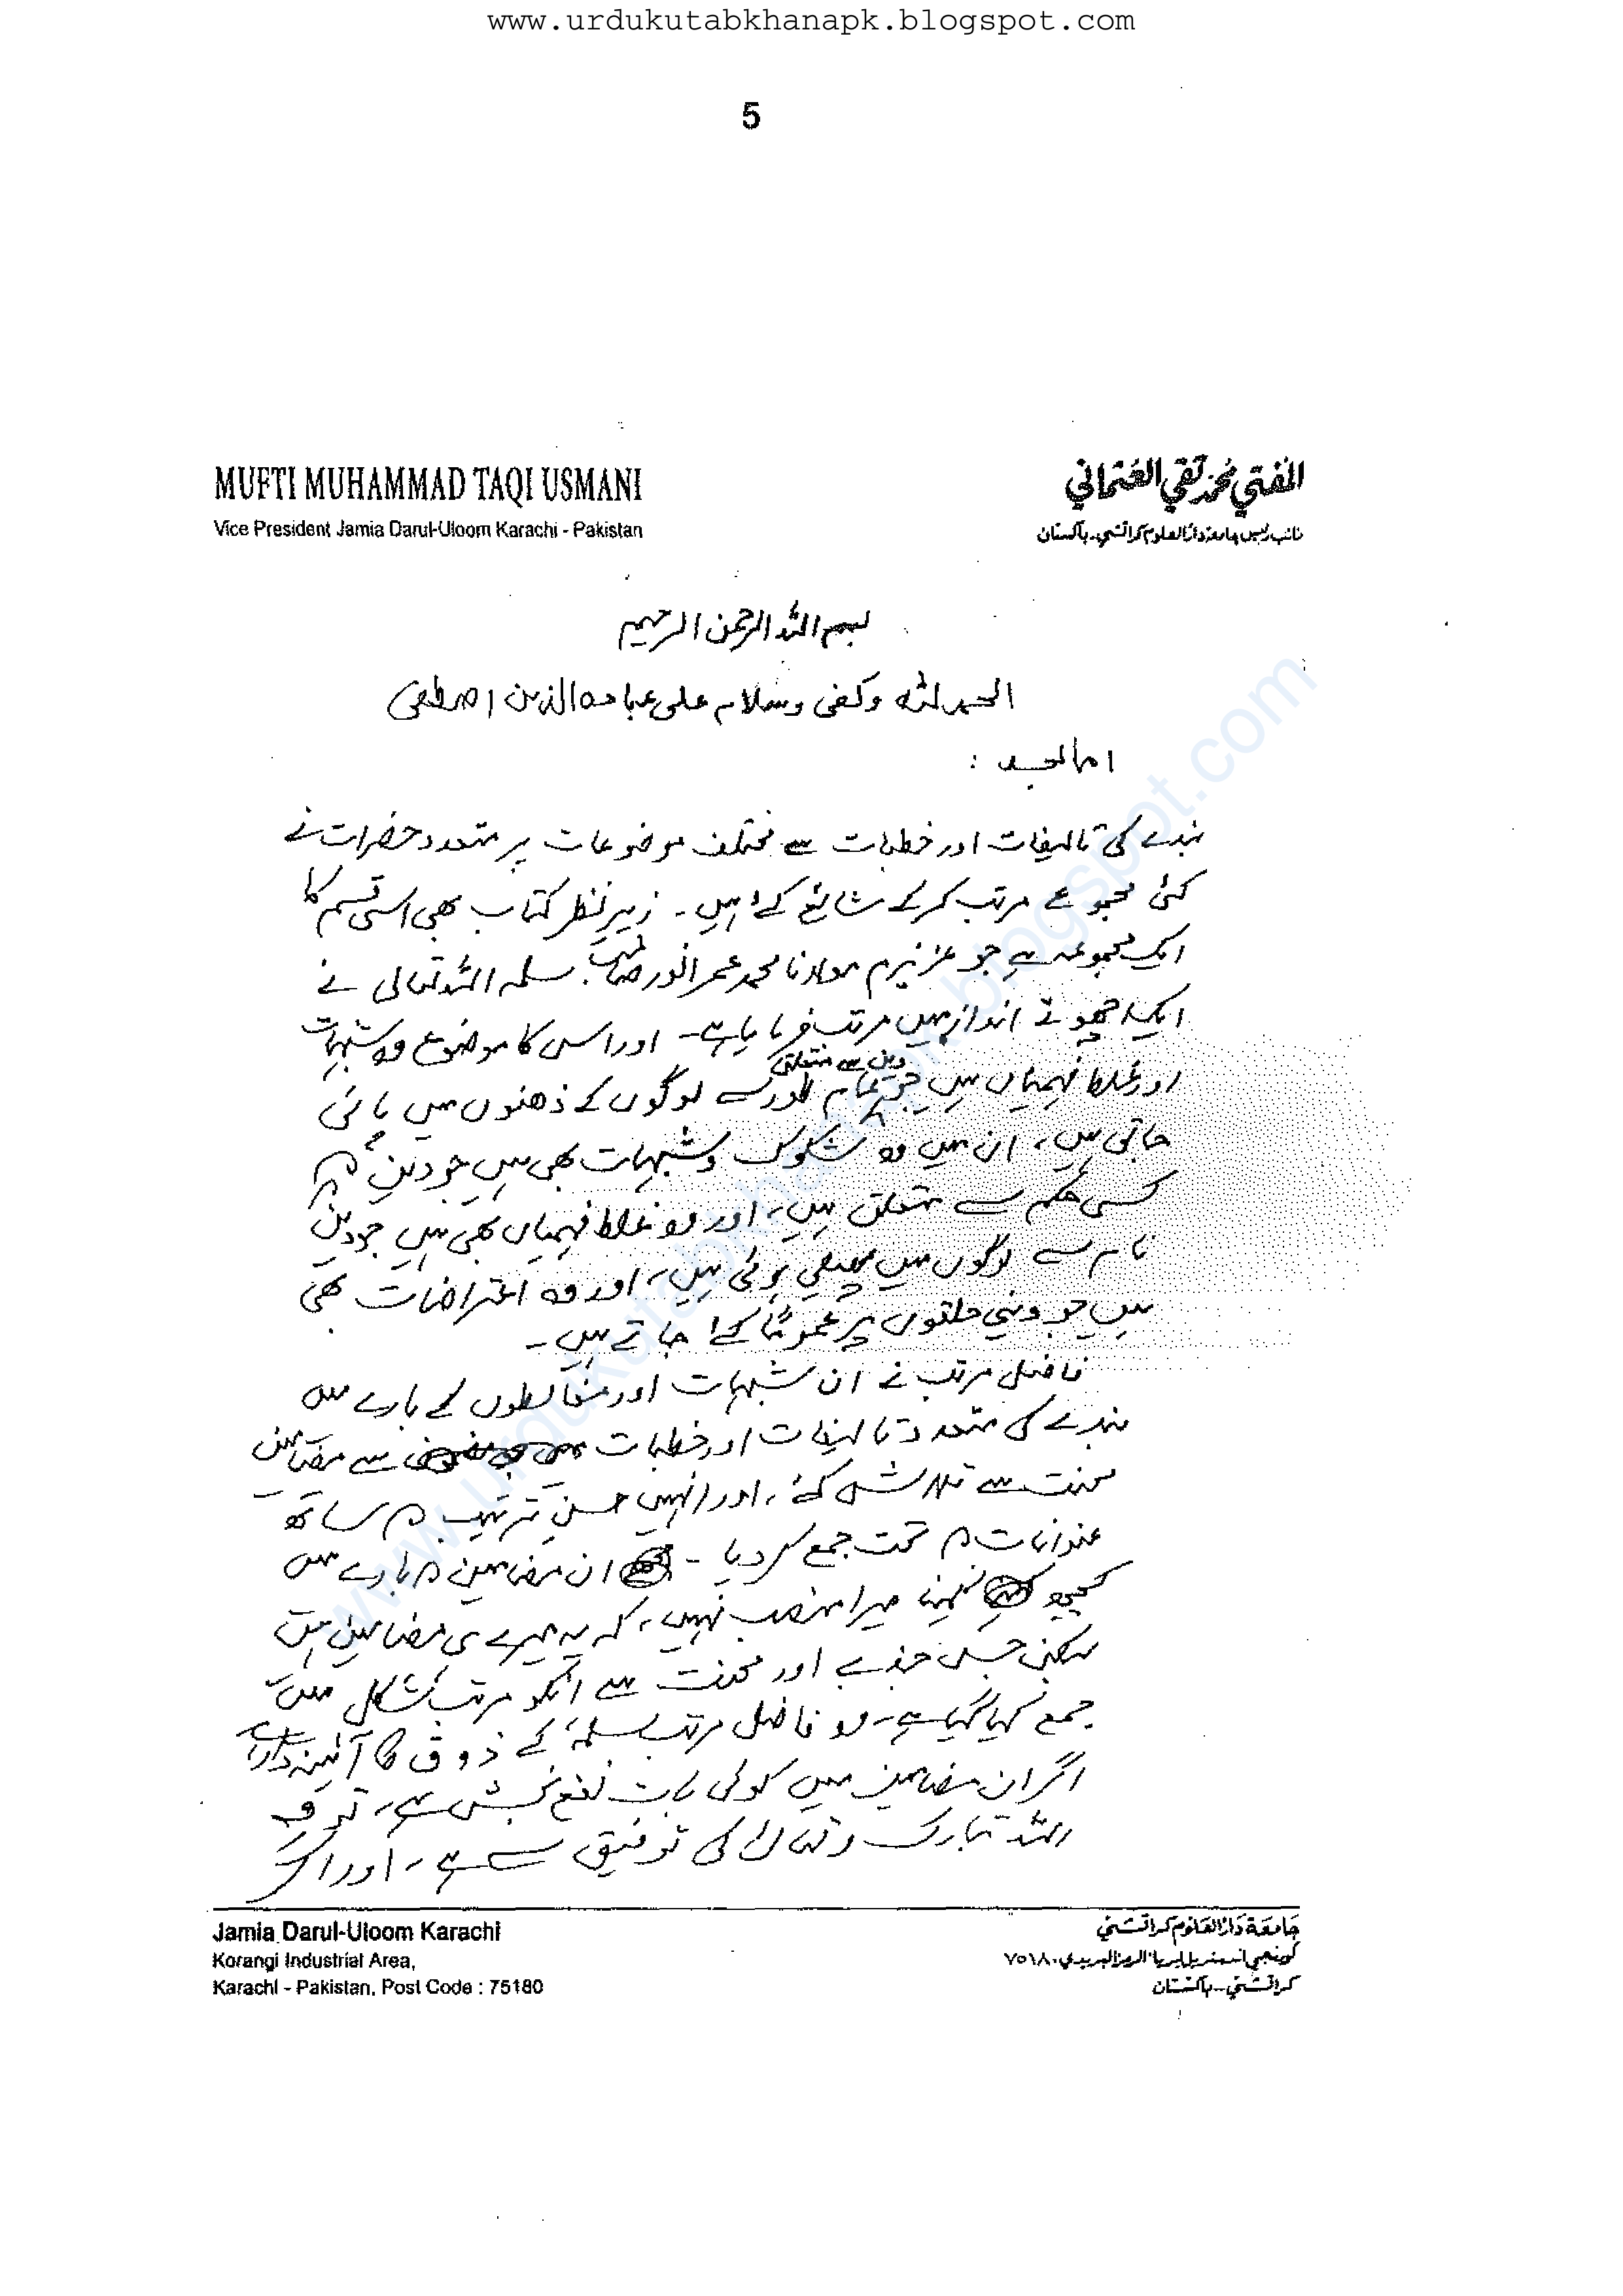 www.urdukutabkhanapk.blogspot.com
5
MUFTI MUHAMMAD TAQI USMANI
المفتي محمد تقي العثماني
Vice President Jamia Darul-Uloom Karachi - Pakistan
نائب رئيس جامعة دار العلوم كراتشي - باكستان
بسم اللہ الرحمن الرحیم
الحمد للہ وکفی وسلام علی عبادہ الذین اصطفی
اما بعد :
بندے کی تالیفات اور خطبات سے مختلف موضوعات پر متعدد حضرات نے
کئی مجموعے مرتب کر کے شائع کئے ہیں ۔ زیر نظر کتاب بھی اسی قسم کا
ایک مجموعہ ہے جو عزیزم مولانا محمد عمر انور صاحب سلمہ اللہ تعالی نے
ایک اچھوتے انداز میں مرتب فرمایا ہے ۔ اور اس کا موضوع وہ شبہات
دین سے متعلق
اور غلط فہمیاں ہیں جو عام طور سے لوگوں کے ذھنوں میں پائی
جاتی ہیں ، ان میں وہ شکوک وشبہات بھی ہیں جو دین کے
کسی حکم سے متعلق ہیں ، اور وہ غلط فہمیاں بھی ہیں جو دین
نام سے لوگوں میں پھیلی ہوئی ہیں ، اور وہ اعتراضات بھی
ہیں جو دینی حلقوں پر عموماً کئے جاتے ہیں ۔
فاضل مرتب نے ان شبہات اور مغالطوں کے بارے میں
بندے کی متعدد تالیفات اور خطبات سے مضامین
محنت سے تلاش کئے ، اور انہیں حسنِ ترتیب کے ساتھ
عنوانات کے تحت جمع کر دیا ۔ ان مضامین کے بارے میں
کچھ کہنا میرا منصب نہیں ، کہ یہ میرے ہی مضامین ہیں
لیکن جس جذبے اور محنت سے انکو مرتب شکل میں
جمع کیا گیا ہے ، وہ فاضل مرتب سلمہ کے ذوق کا آئینہ دار ہے
اگر ان مضامین میں کوئی بات نفع بخش ہے ، تو وہ
اللہ تبارک وتعالیٰ کی توفیق سے ہے ، اور اگر
Jamia Darul-Uloom Karachi
جامعة دار العلوم كراتشي
Korangi Industrial Area,
كورنجي اندستريل ايريا، الرمز البريدي ٧٥١٨٠
Karachi - Pakistan, Post Code : 75180
كراتشي - باكستان
www.urdukutabkhanapk.blogspot.com